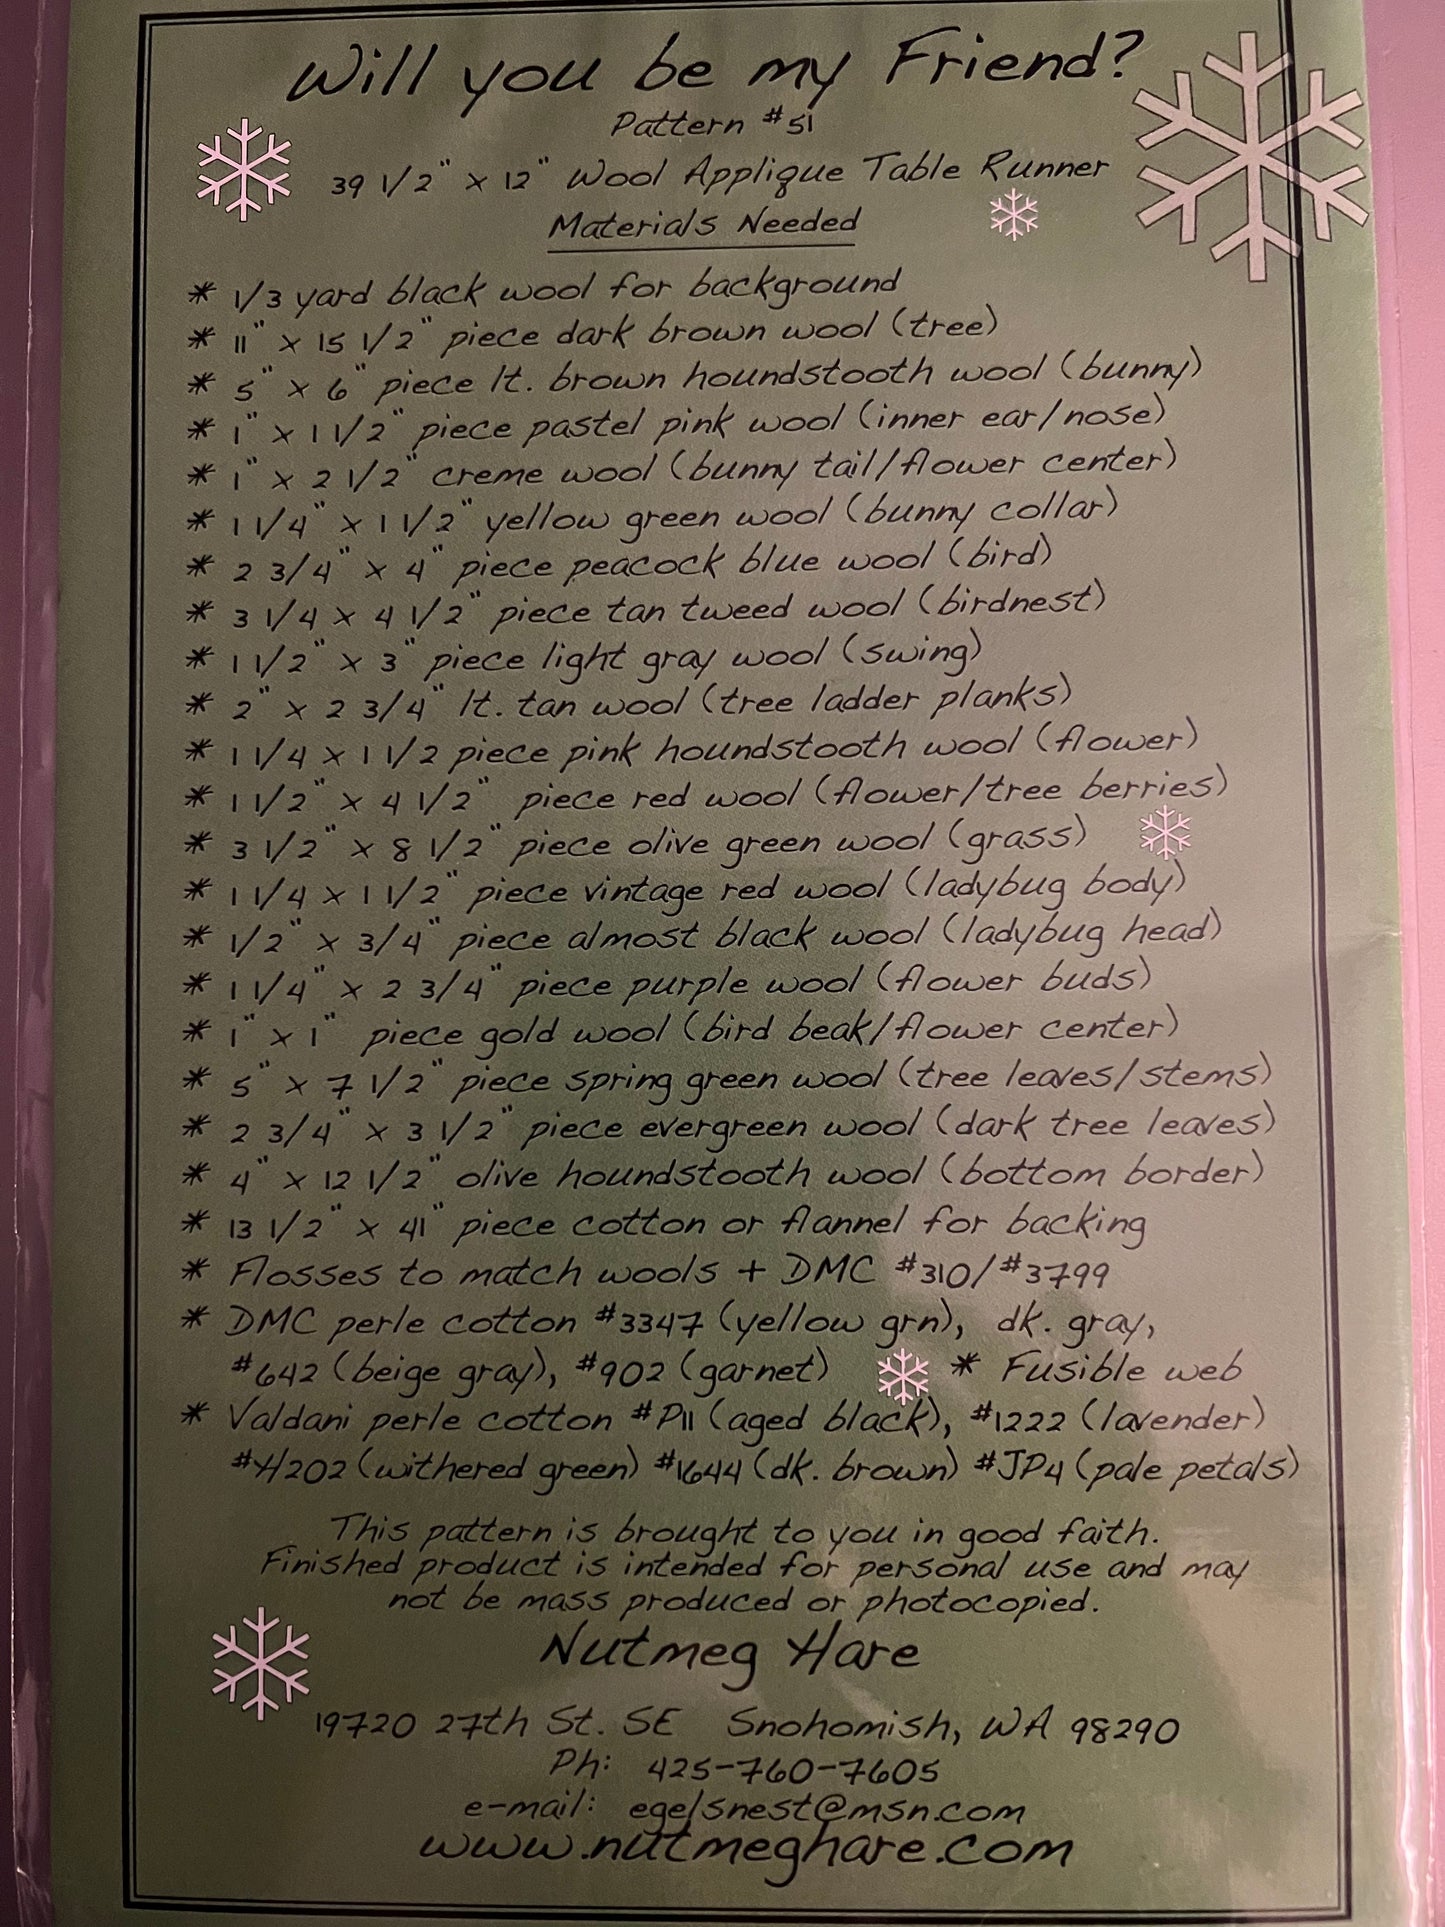 Will you be my Friend?
Pattern #51
39 1/2" x 12" Wool Applique Table Runner
Materials Needed
* 1/3 yard black wool for background
* 11" x 15 1/2" piece dark brown wool (tree)
* 5" x 6" piece lt. brown houndstooth wool (bunny)
* 1" x 1 1/2" piece pastel pink wool (inner ear/nose)
* 1" x 2 1/2" creme wool (bunny tail/flower center)
* 1 1/4" x 1 1/2" yellow green wool (bunny collar)
* 2 3/4" x 4" piece peacock blue wool (bird)
* 3 1/4 x 4 1/2" piece tan tweed wool (birdnest)
* 1 1/2" x 3" piece light gray wool (swing)
* 2" x 2 3/4" lt. tan wool (tree ladder planks)
* 1 1/4 x 1 1/2 piece pink houndstooth wool (flower)
* 1 1/2" x 4 1/2" piece red wool (flower/tree berries)
* 3 1/2" x 8 1/2" piece olive green wool (grass)
* 1 1/4 x 1 1/2" piece vintage red wool (ladybug body)
* 1/2" x 3/4" piece almost black wool (ladybug head)
* 1 1/4" x 2 3/4" piece purple wool (flower buds)
* 1" x 1" piece gold wool (bird beak/flower center)
* 5" x 7 1/2" piece spring green wool (tree leaves/stems)
* 2 3/4" x 3 1/2" piece evergreen wool (dark tree leaves)
* 4" x 12 1/2" olive houndstooth wool (bottom border)
* 13 1/2" x 41" piece cotton or flannel for backing
* Flosses to match wools + DMC #310/#3799
* DMC perle cotton #3347 (yellow grn), dk. gray,
#642 (beige gray), #902 (garnet) * Fusible web
* Valdani perle cotton #P11 (aged black), #1222 (lavender)
#H202 (withered green) #1644 (dk. brown) #JP4 (pale petals)
This pattern is brought to you in good faith.
Finished product is intended for personal use and may
not be mass produced or photocopied.
Nutmeg Hare
19720 27th St. SE Snohomish, WA 98290
Ph: 425-760-7605
e-mail: egelsnest@msn.com
www.nutmeghare.com